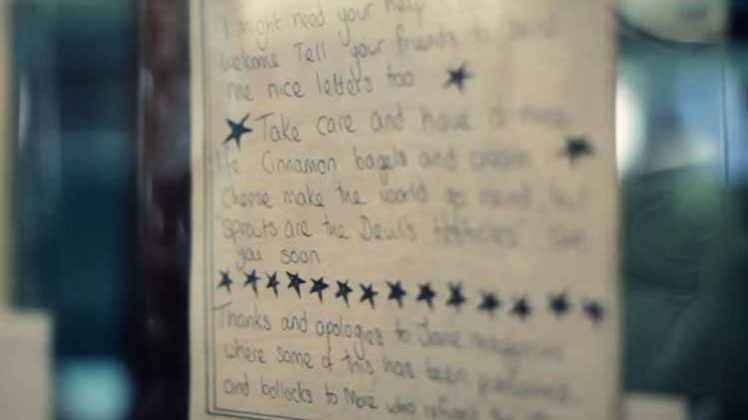 I might need your help
welcome Tell your friends to send
me nice letters too
Take care and have a nice
life Cinnamon bagels and cream
cheese make the world go round, but
'sprouts are the Devil's testicles' See
you soon
Thanks and apologies to Jane magazine
where some of this has been
and bollocks to More who refused to